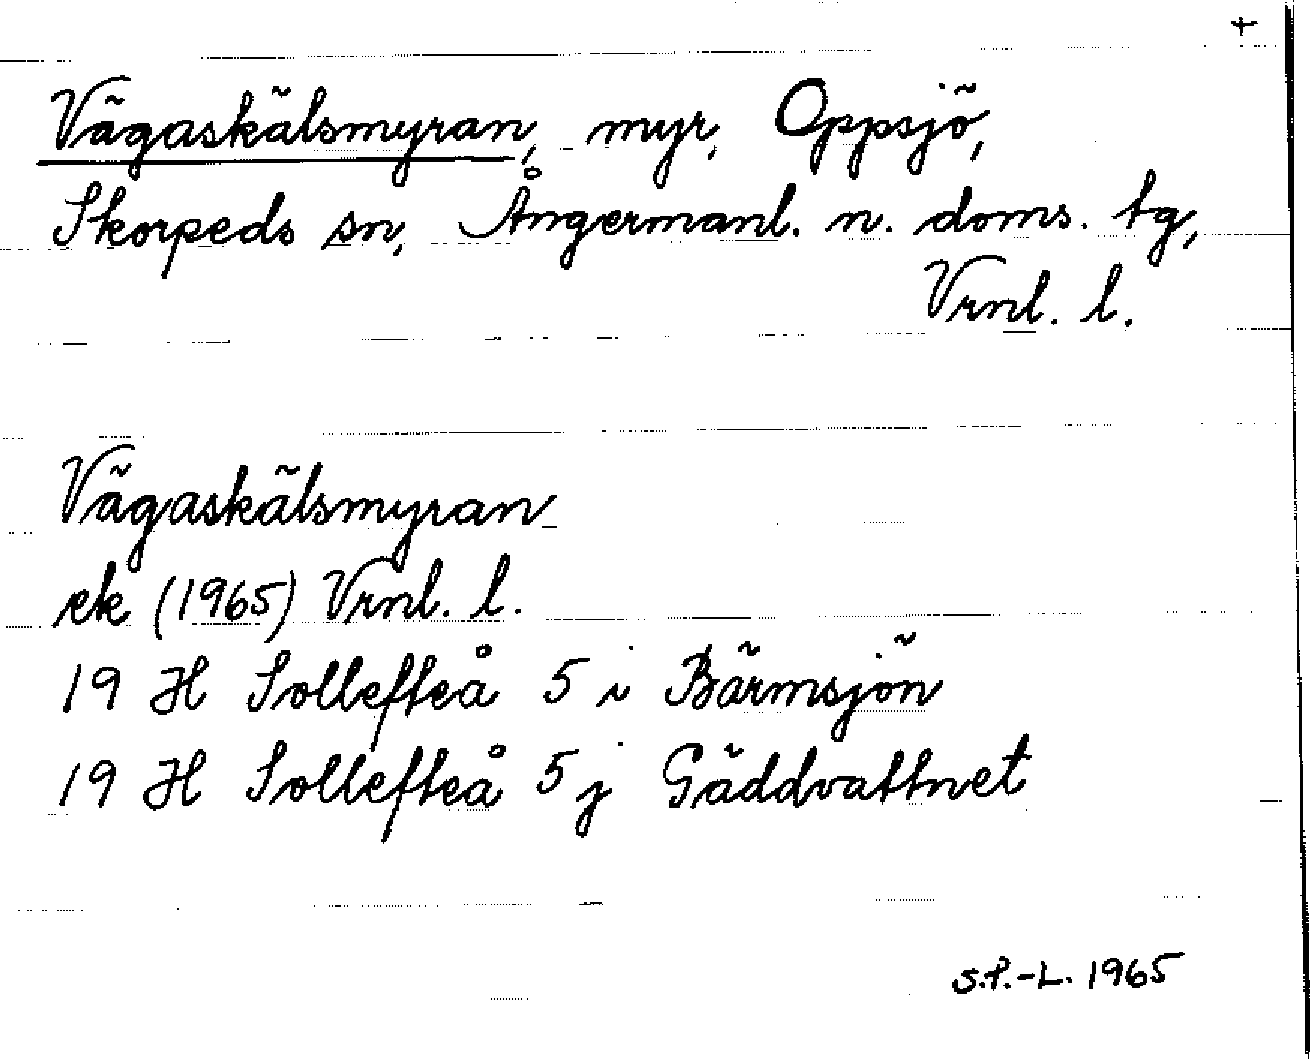 +
Vägaskälsmyran, myr, Oppsjö,
Skorpeds sn, Ångermanl. n. doms. tg,
Vrnl. l.
Vägaskälsmyran
ek (1965) Vrnl. l.
19 H Sollefteå 5 i Bärmsjön
19 H Sollefteå 5 j Gäddvattnet
S.P.-L. 1965